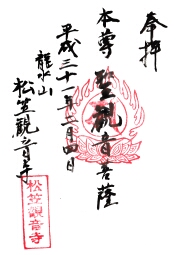 奉拝
本尊 聖観音菩薩
平成三十一年二月四日
龍水山
松笠観音寺
松笠観音寺